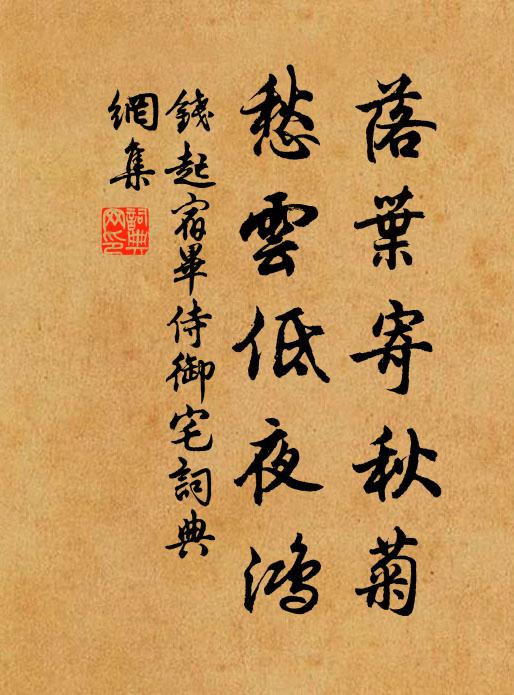 落葉寄秋菊
愁雲低夜鴻
錢起宿畢侍御宅詞典
網集
詞典
网印